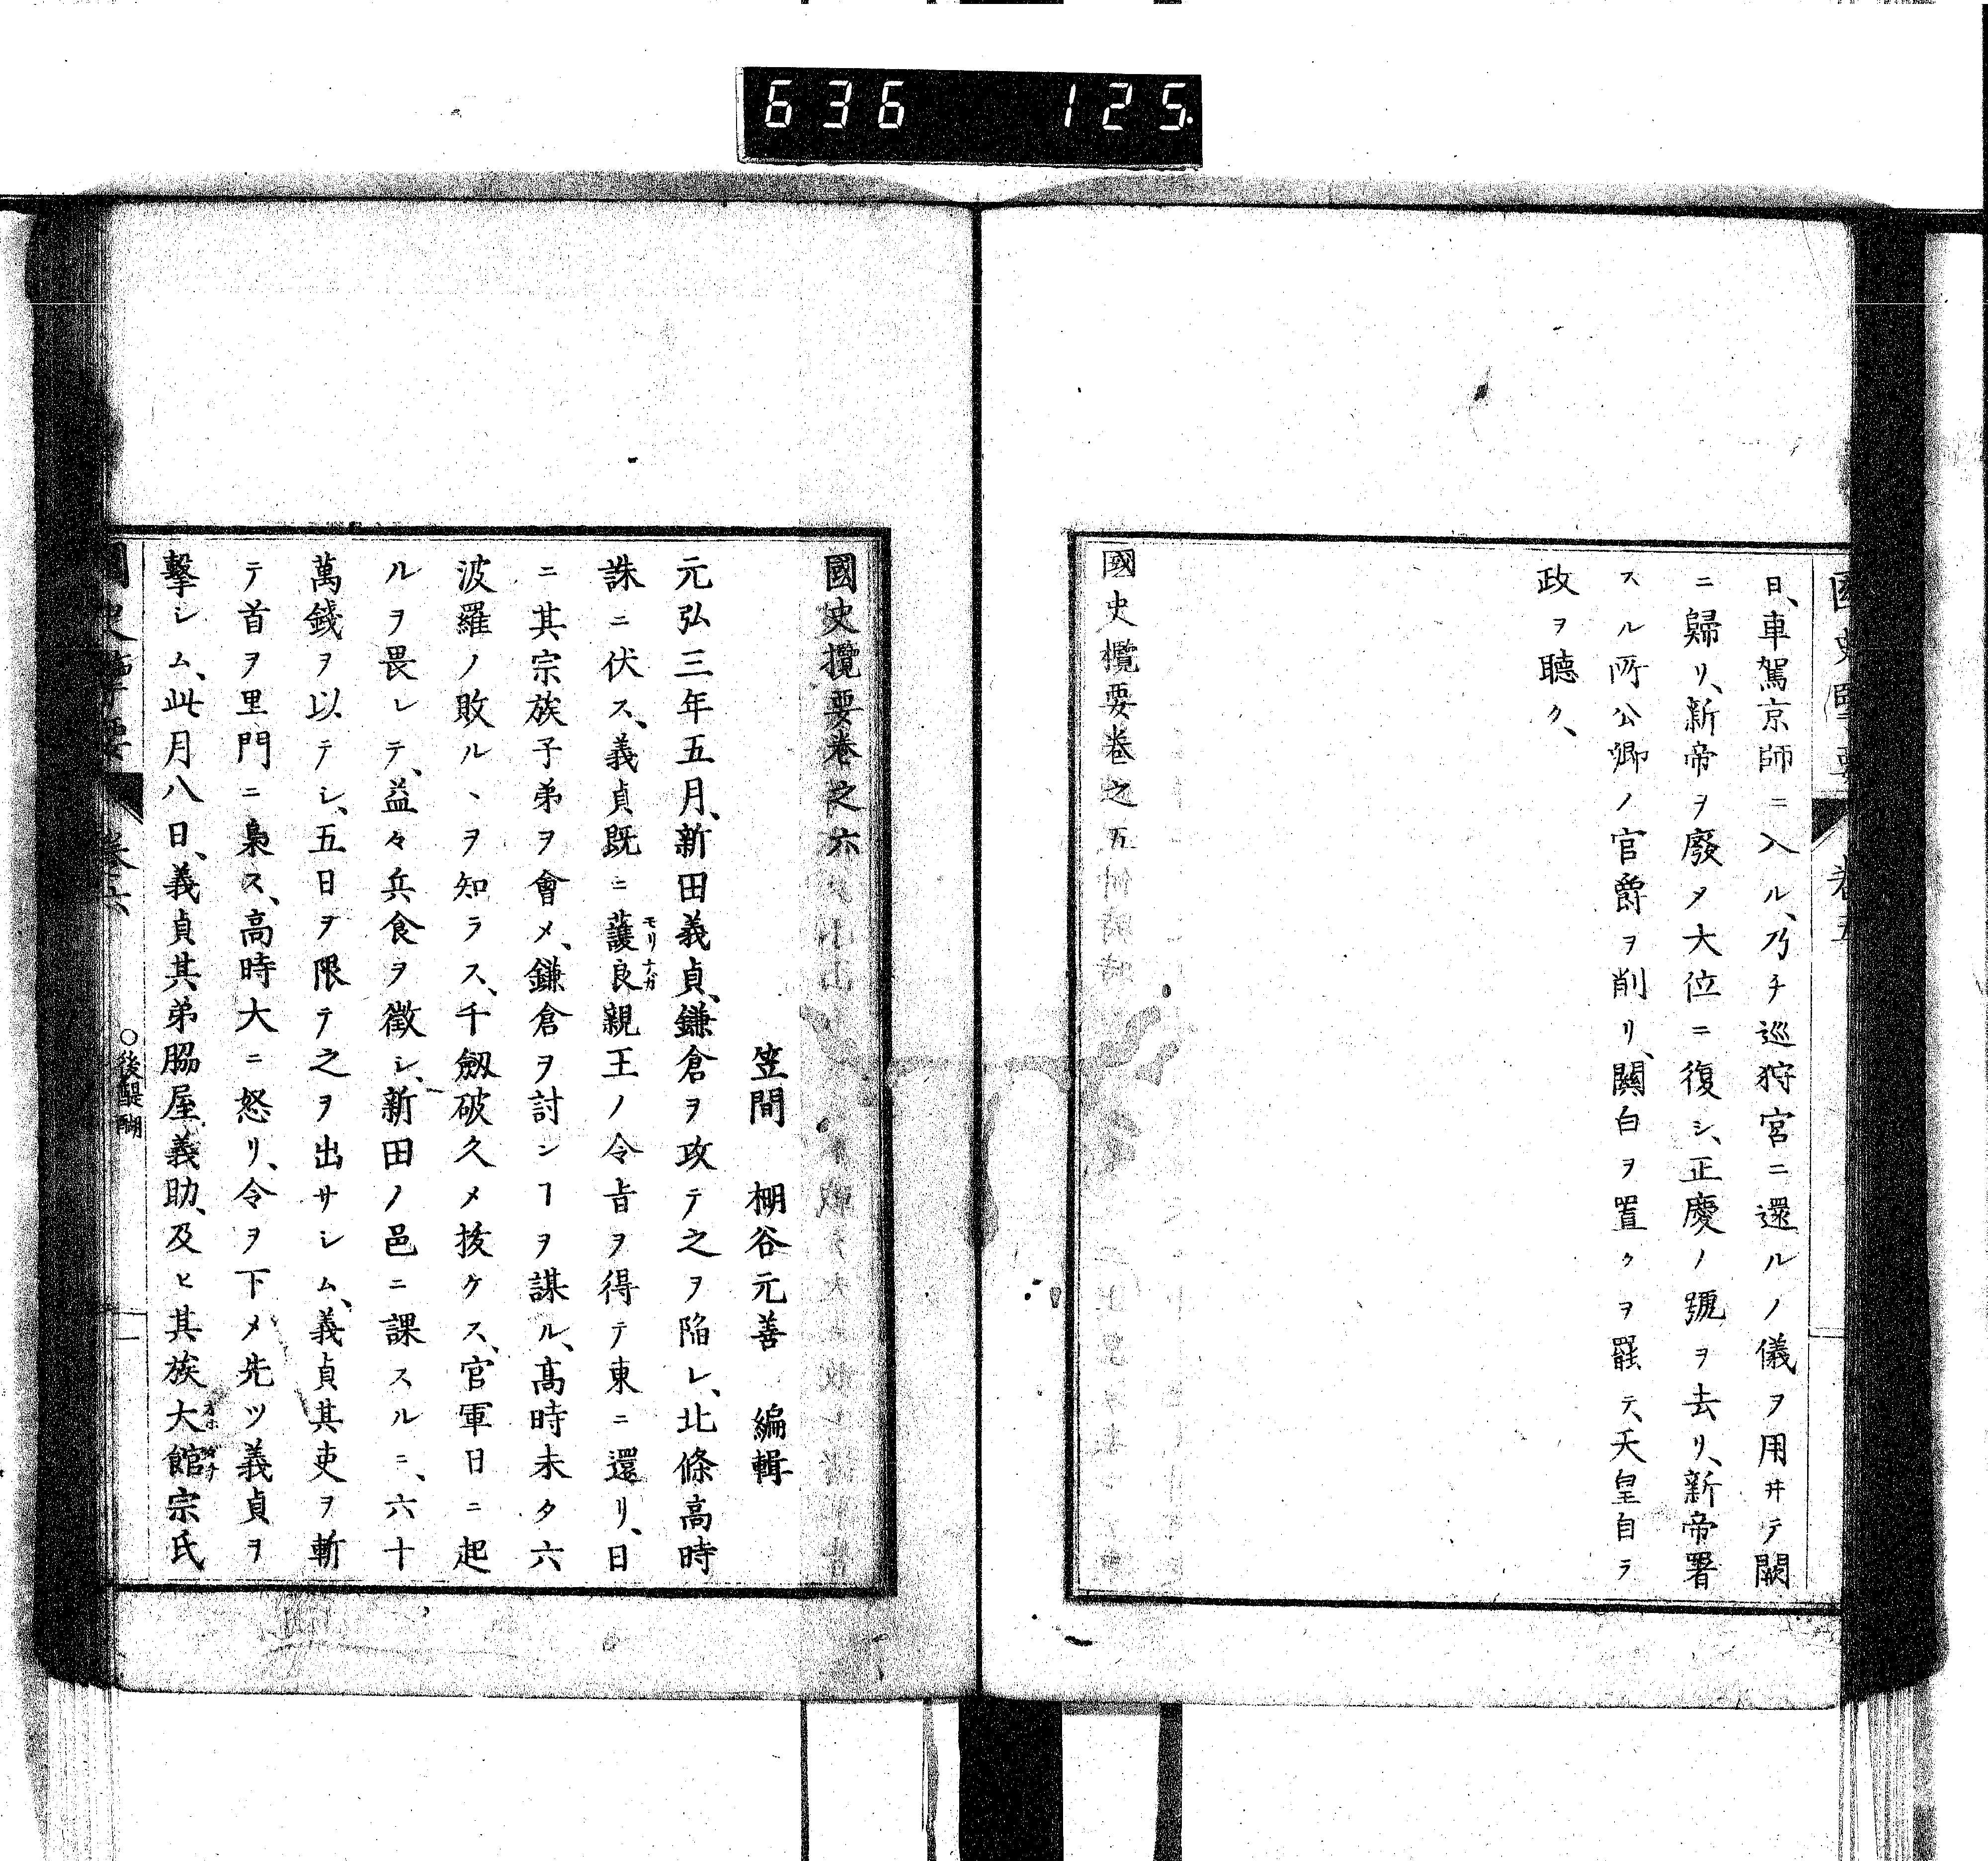 636 125.
日、車駕京師ニ入ル、乃チ巡狩宮ニ還ルノ儀ヲ用井テ闕
ニ歸リ、新帝ヲ廢メ大位ニ復シ、正慶ノ號ヲ去リ、新帝署
スル所公卿ノ官爵ヲ削リ、關白ヲ置クヲ罷テ、天皇自ラ
政ヲ聽ク、
國史欖要卷之五
國史攬要卷之六
笠間 棚谷元善 編輯
元弘三年五月、新田義貞、鎌倉ヲ攻テ之ヲ陷レ、北條高時
誅ニ伏ス、義貞既ニ護良親王ノ令旨ヲ得テ東ニ還リ、日
モリナガ
ニ其宗族子弟ヲ會メ、鎌倉ヲ討ンヿヲ謀ル、高時未タ六
波羅ノ敗ルヽヲ知ラス、千劔破久メ拔ケス、官軍日ニ起
ルヲ畏レテ、益々兵食ヲ徵シ、新田ノ邑ニ課スルニ、六十
萬錢ヲ以テシ、五日ヲ限テ之ヲ出サシム、義貞其吏ヲ斬
テ首ヲ里門ニ梟ス、高時大ニ怒リ、令ヲ下メ先ツ義貞ヲ
擊シム、此月八日、義貞其弟脇屋義助、及ヒ其族大館宗氏
○後醍醐
一